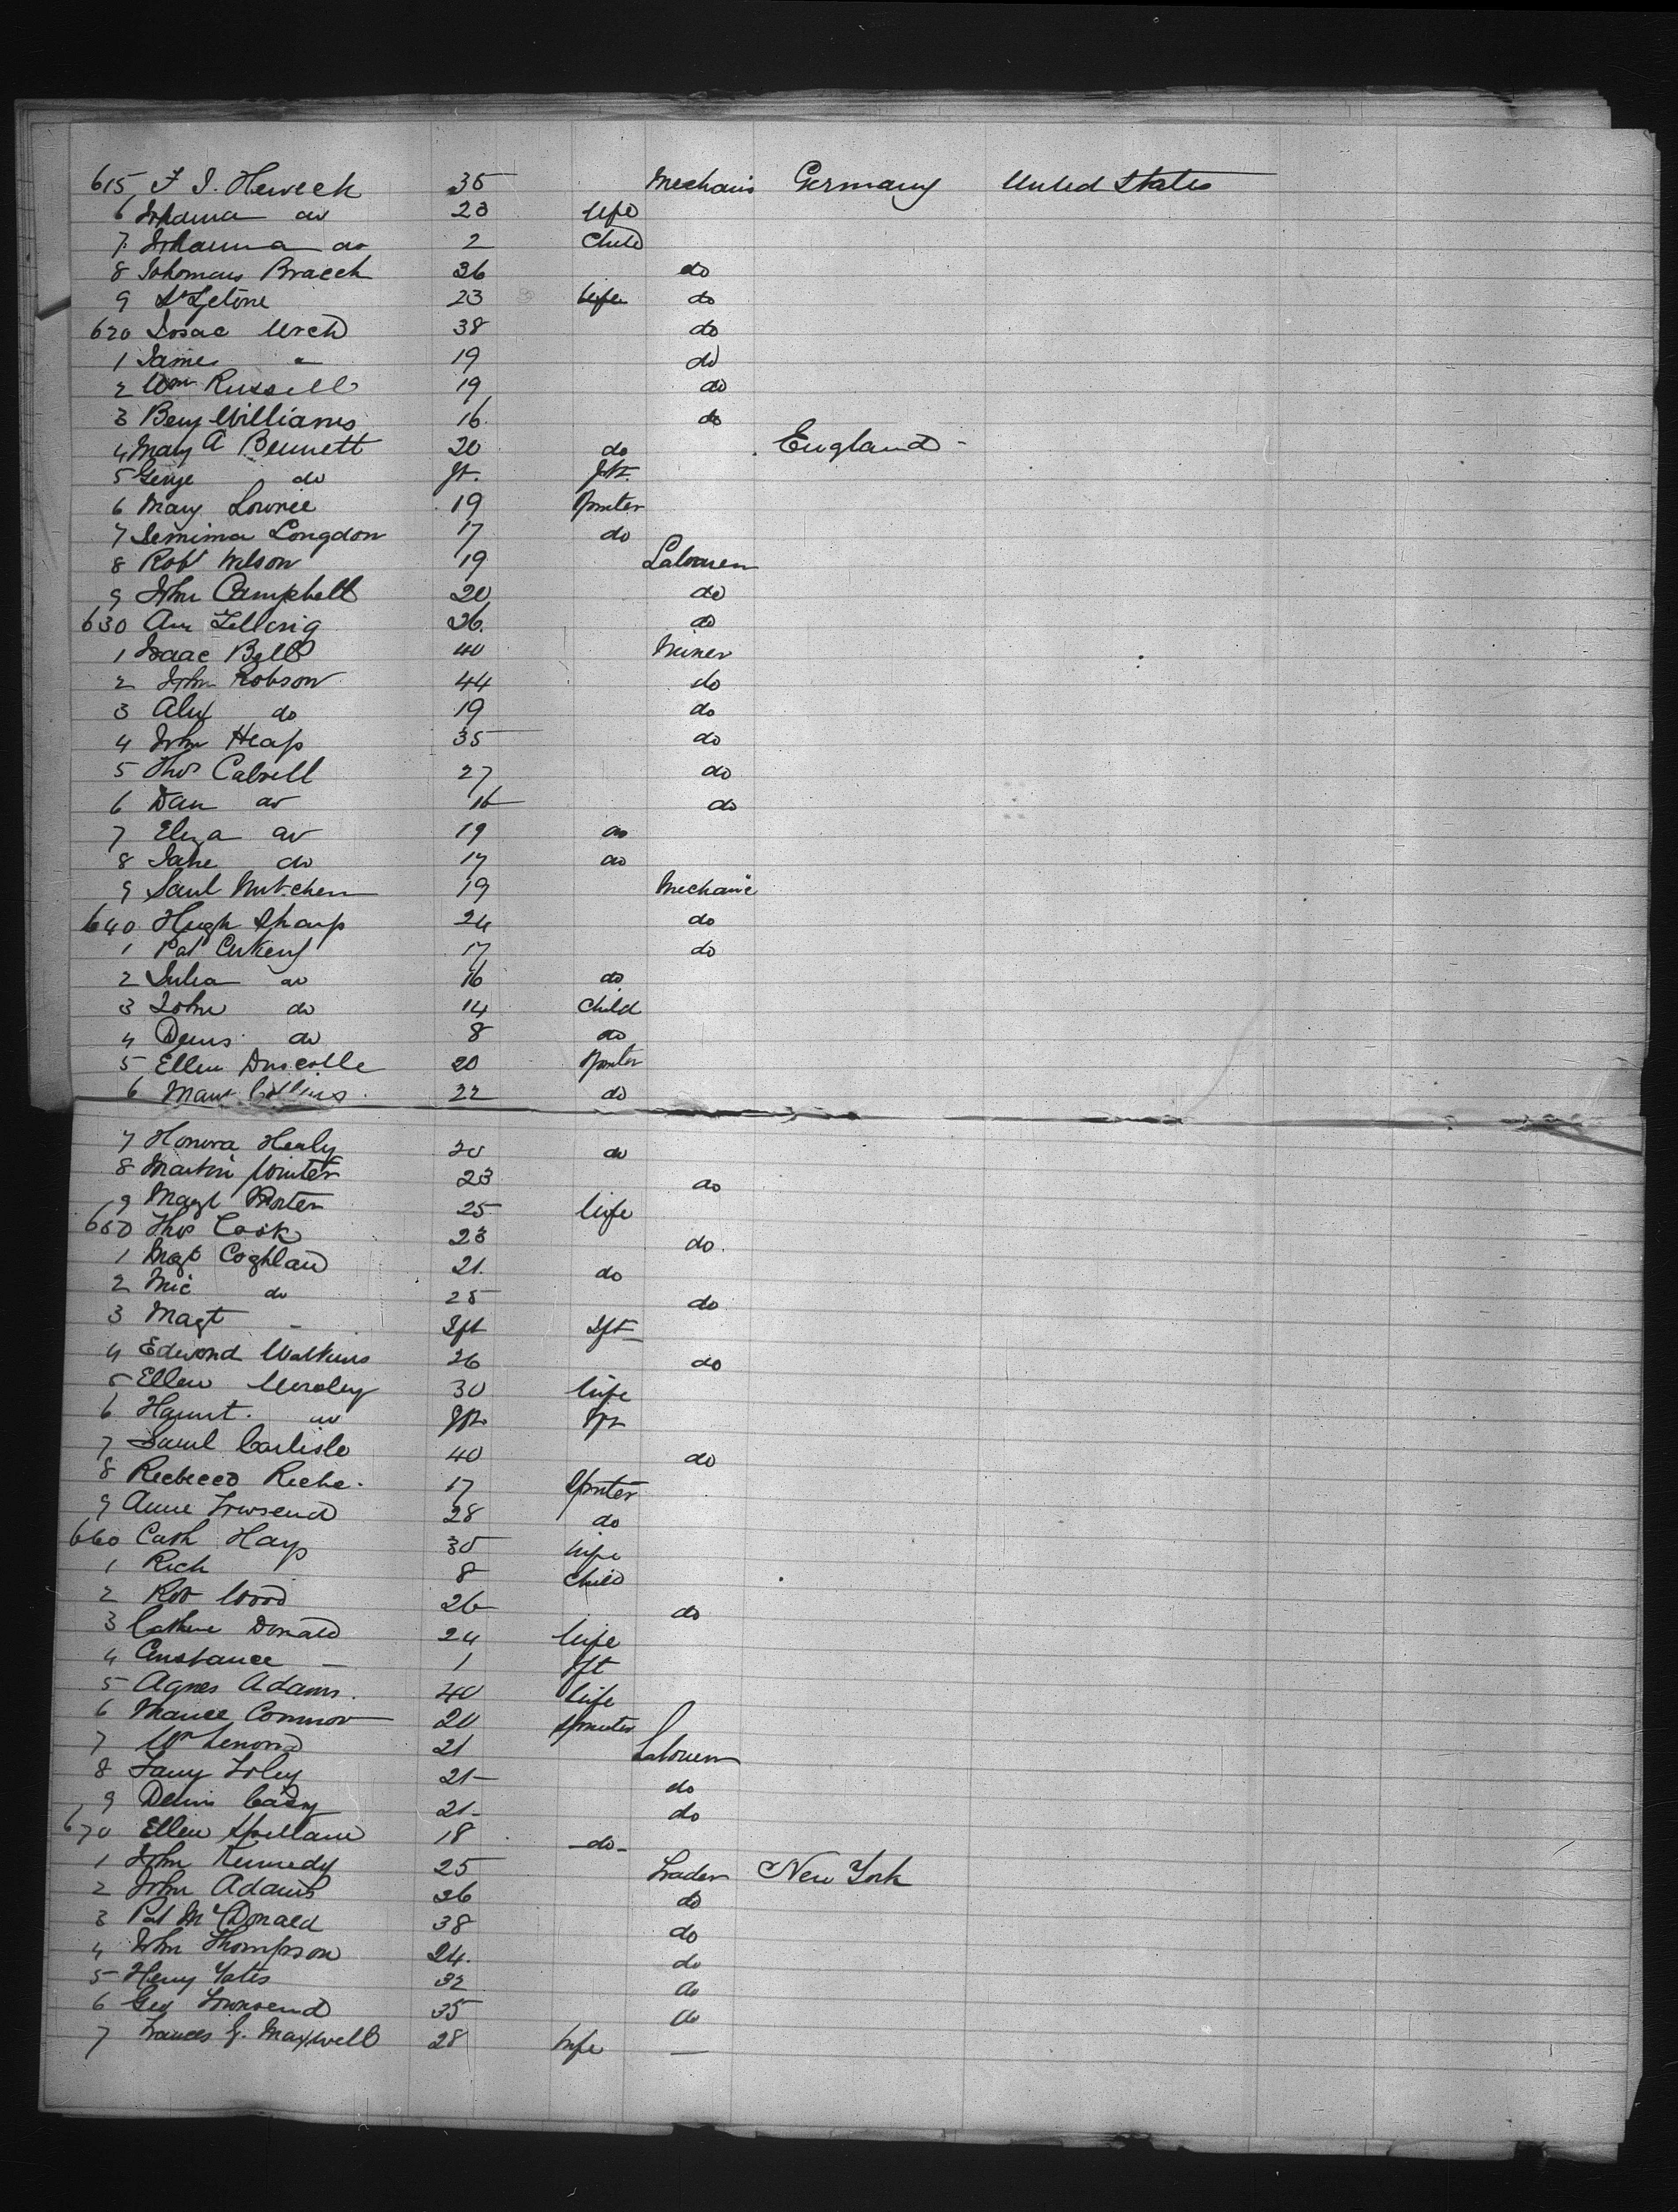 615 F. J. Herveck 35 Mechanic Germany United States
6 Johanna do 23 Wife
7 Johanna do 2 Child
8 Bracek 36 do
9 23 Wife do
620 Isaac 38 do
1 James " 19 do
2 Wm Russell 19 do
3 Benj Williams 16 do
4 Mary A Bennett 20 do England
5 George do Jft. Jft.
6 Mary Lowrie 19 Spinster
7 Jemima Longdon 17 do
8 Robt Wilson 19 Labourer
9 John Campbell 20 do
630 26. do
1 Isaac Bell 40 Miner
2 John Robson 44 do
3 Alex do 19 do
4 John Heap 35 do
5 Thos Calvell 27 do
6 Dan do 16 do
7 Eliza do 19 do
8 Jane do 17 do
9 Saml 19 Mechanic
640 Hugh Sharp 24 do
1 Pat 17 do
2 Julia do 16 do
3 John do 14 Child
4 Denis do 8 do
5 Ellen Driscolle 20 Spinster
6 Mary Collins 22 do
7 Honora Healy 20 do
8 Martin 23 do
9 Magt 25 Wife
650 Thos Cask 23 do.
1 Magt Coghlan 21. do
2 Mic do 25 do
3 Magt - Ift Ift
4 Edwond Watkins 26 do
5 Ellen Worsley 30 Wife
6 do
7 Saml Carlisle 40 do
8 17 Spinster
9 Anne Townsend 28 do
660 Cath Hays 30 Wife
1 Rich 8 Child
2 Rob Wood 26 do
3 Donald 24 Wife
4 Constance - 1 Ift
5 Agnes Adams. 40 Wife
6 Connor 20 Spinster
7 Wm 21 Labourer
8 Foley 21 do
9 Denis 21 do
670 Ellen Spillane 18 do
1 John Kennedy 25 Trader New York
2 John Adams 26 do
3 Pat McDonald 38 do
4 John Thompson 24. do
5 Henry Yates 32 do
6 Geo Townsend 35 do
7 Frances J. Maxwell 28 Wife —